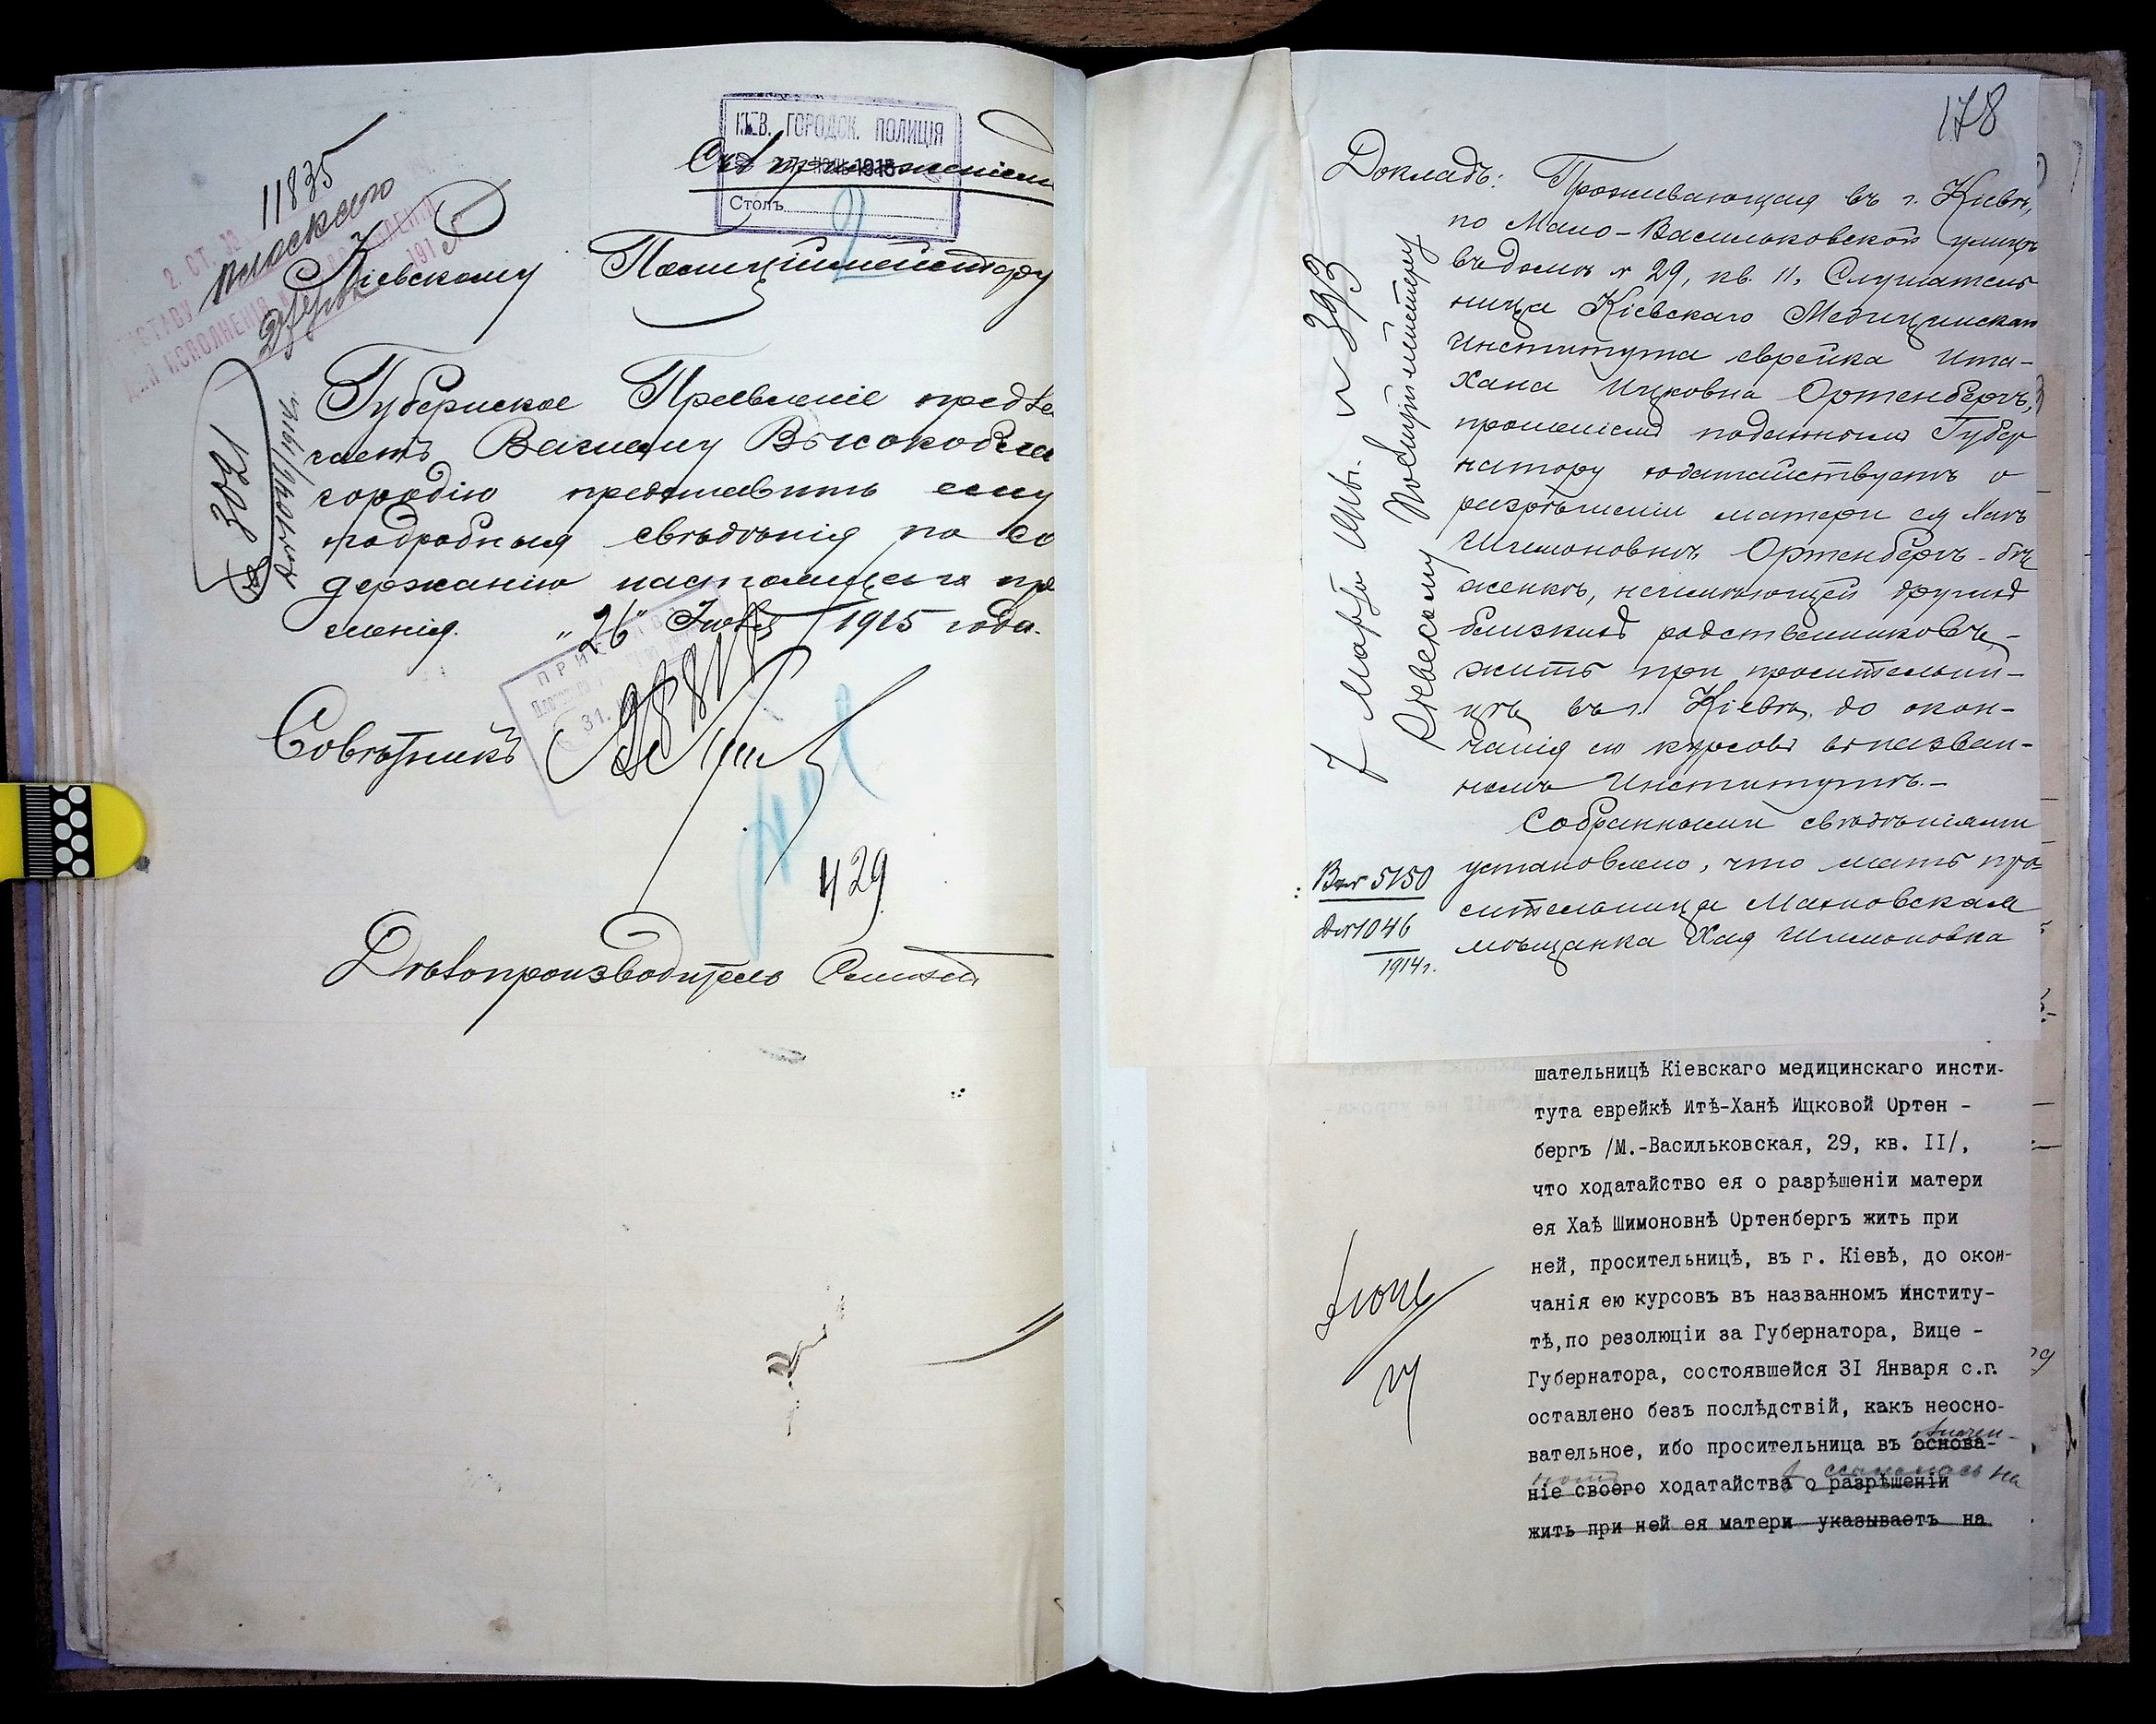 КІЕВ. ГОРОДСК. ПОЛИЦІЯ
1915
Столъ
Съ приложеніем
11835
Плоскаго
Кіевскому Полиціймейстеру
Губернское Правленіе предла
гаетъ Вашему Высокобла
городію представить ему
подробныя свѣдѣнія по со
держанію настоящаго пр
шенія. „26" 1915 года.
3021
1046/1914г.
Совѣтникъ
429
Дѣлопроизводитель
178
Докладъ: Проживающая въ г. Кіевѣ,
по Мало-Васильковской улицѣ
въ домѣ № 29, кв. 11, Слушатель
ница Кіевскаго Медицинскаго
Института еврейка Ита-
Хана Ицковна Ортенбергъ,
прошеніемъ поданнымъ Губер
натору ходатайствуетъ о
разрѣшеніи матери ея Хаѣ
Шимоновнѣ Ортенбергъ - бѣ
женкѣ, неимѣющей другихъ
близкихъ родственниковъ, -
жить при просительни-
цѣ въ г. Кіевѣ, до окон-
чанія ею курсовъ въ назван-
номъ Институтѣ. -
Собранными свѣдѣніями
установлено, что мать про-
сительницы Махновская
мѣщанка Хая Шимоновна
7 Марта № 393
Кіевскому Полиціймейстеру
Вх № 5150
Д № 1046
1914г.
шательницѣ Кіевскаго медицинскаго инсти-
тута еврейкѣ Итѣ-Ханѣ Ицковой Ортен -
бергъ /М.-Васильковская, 29, кв. II/,
что ходатайство ея о разрѣшеніи матери
ея Хаѣ Шимоновнѣ Ортенбергъ жить при
ней, просительницѣ, въ г. Кіевѣ, до окон-
чанія ею курсовъ въ названномъ институ-
тѣ,по резолюціи за Губернатора, Вице -
Губернатора, состоявшейся 3I Января с.г.
оставлено безъ послѣдствій, какъ неосно-
вательное, ибо просительница въ основа-
ніе своего ходатайства о разрѣшеніи
жить при ней ея матери указываетъ на